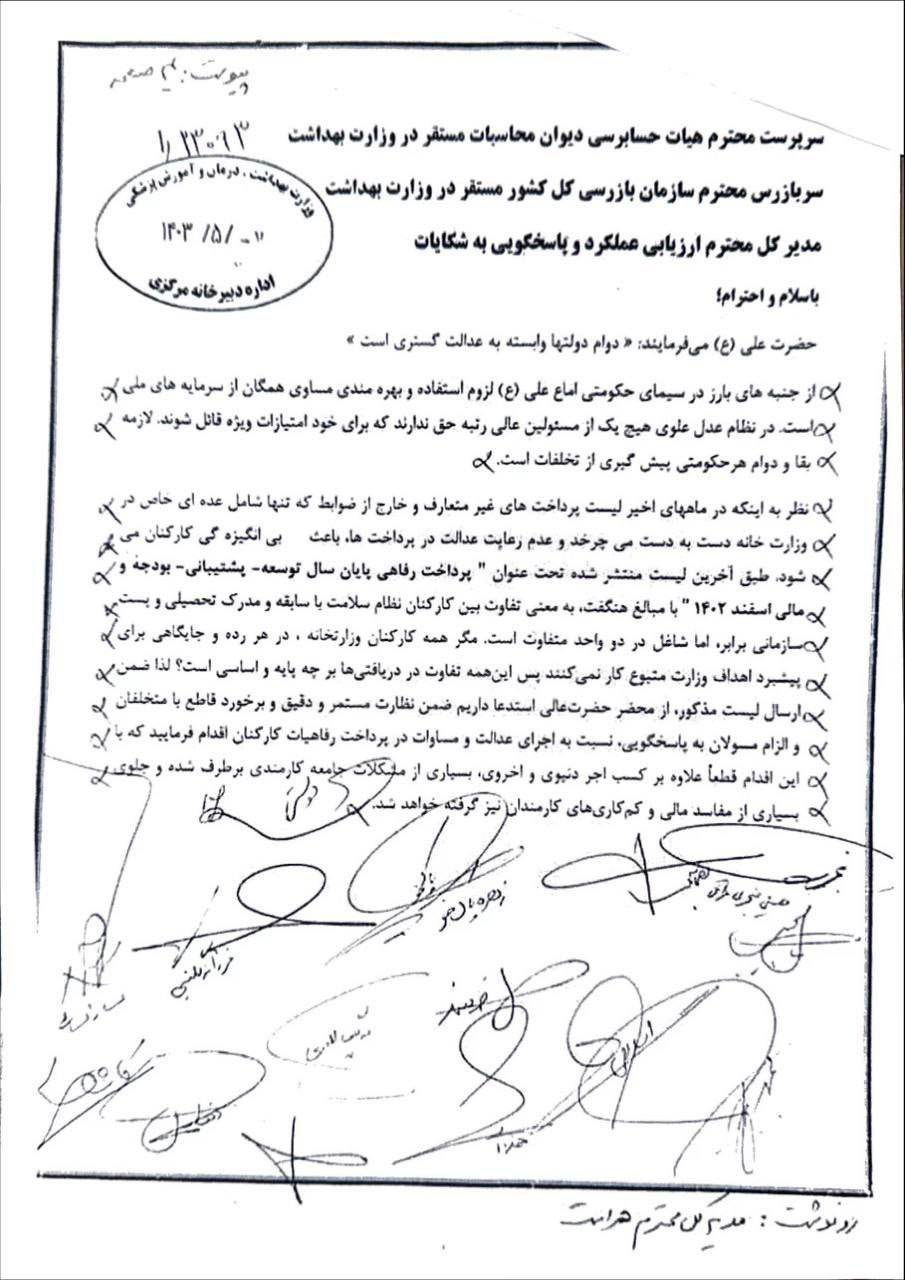 پیوست: ۴ صفحه
سرپرست محترم هیات حسابرسی دیوان محاسبات مستقر در وزارت بهداشت
سربازرس محترم سازمان بازرسی کل کشور مستقر در وزارت بهداشت
وزارت بهداشت، درمان و آموزش پزشکی
۱۴۰۳/۵/
اداره دبیرخانه مرکزی
مدیر کل محترم ارزیابی عملکرد و پاسخگویی به شکایات
باسلام و احترام؛
حضرت علی (ع) می‌فرمایند: « دوام دولتها وابسته به عدالت گستری است »
از جنبه های بارز در سیمای حکومتی اماع علی (ع) لزوم استفاده و بهره مندی مساوی همگان از سرمایه های ملی
است. در نظام عدل علوی هیچ یک از مسئولین عالی رتبه حق ندارند که برای خود امتیازات ویژه قائل شوند. لازمه
بقا و دوام هرحکومتی پیش گیری از تخلفات است.
نظر به اینکه در ماههای اخیر لیست پرداخت های غیر متعارف و خارج از ضوابط که تنها شامل عده ای خاص در
وزارت خانه دست به دست می چرخد و عدم رعایت عدالت در پرداخت ها، باعث بی انگیزه گی کارکنان می
شود. طبق آخرین لیست منتشر شده تحت عنوان " پرداخت رفاهی پایان سال توسعه- پشتیبانی- بودجهٔ و
مالی اسفند ۱۴۰۲ " با مبالغ هنگفت، به معنی تفاوت بین کارکنان نظام سلامت با سابقه و مدرک تحصیلی و پست
سازمانی برابر، اما شاغل در دو واحد متفاوت است. مگر همه کارکنان وزارتخانه ، در هر رده و جایگاهی برای
پیشبرد اهداف وزارت متبوع کار نمی‌کنند پس این‌همه تفاوت در دریافتی‌ها بر چه پایه و اساسی است؟ لذا ضمن
ارسال لیست مذکور، از محضر حضرت‌عالی استدعا داریم ضمن نظارت مستمر و دقیق و برخورد قاطع با متخلفان
و الزام مسولان به پاسخگویی، نسبت به اجرای عدالت و مساوات در پرداخت رفاهیات کارکنان اقدام فرمایید که با
این اقدام قطعاً علاوه بر کسب اجر دنیوی و اخروی، بسیاری از مشکلات جامعه کارمندی برطرف شده و جلوی
بسیاری از مفاسد مالی و کم‌کاری‌های کارمندان نیز گرفته خواهد شد.
رونوشت : مدیر کل محترم حراست